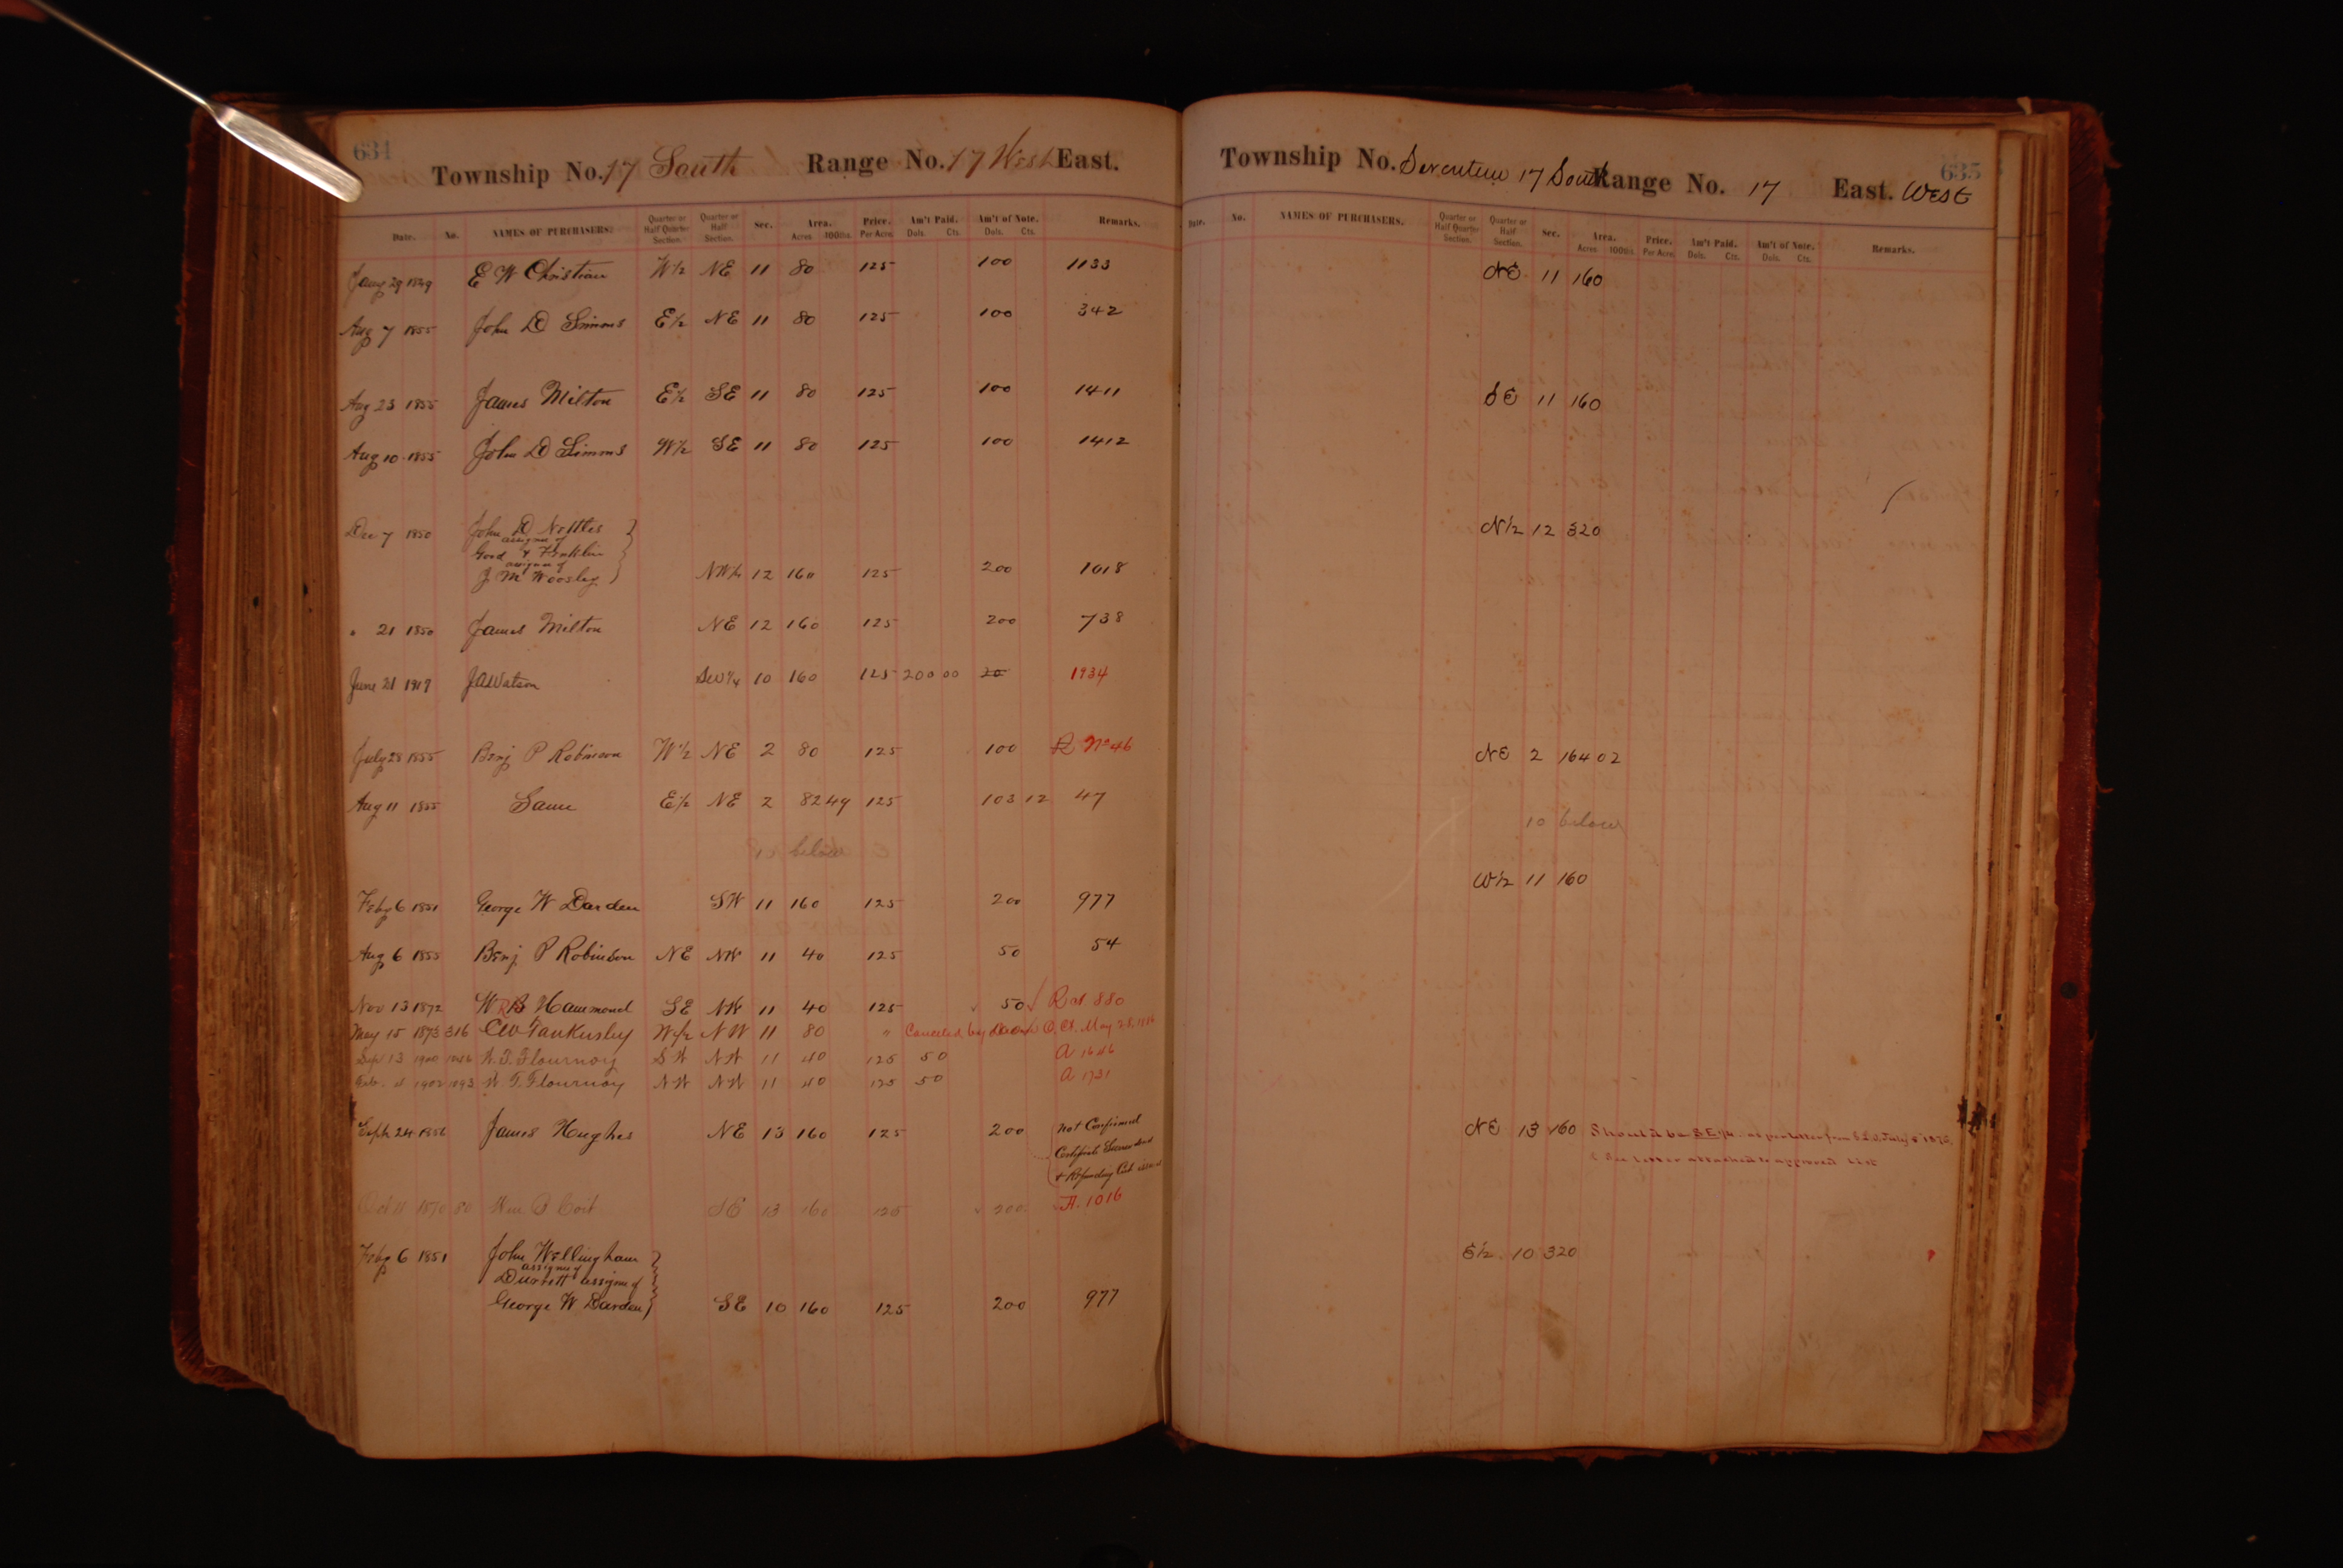 634
Township No. 17 South Range No. 17 West East.
Date. No. NAMES OF PURCHASERS. Quarter or Half Quarter Section. Quarter or Half Section. Sec. Area. Acres 100ths. Price. Per Acre. Am't Paid. Dols. Cts. Am't of Note. Dols. Cts. Remarks.
Jany 29 1849 E W Christian W½ NE 11 80 125 100 1133
Aug 7 1855 John D Simms E½ NE 11 80 125 100 342
Aug 23 1855 James Milton E½ SE 11 80 125 100 1411
Aug 10 1855 John D Simms W½ SE 11 80 125 100 1412
Dec 7 1850 John D Nettles
assignee of
Good & Franklin
assignee of
J. M Woosley NW¼ 12 160 125 200 1018
" 21 1850 James Milton NE 12 160 125 200 738
June 21 1919 JA Watson SW¼ 10 160 125 200 00 20 1934
July 28 1855 Benj P Robinson W½ NE 2 80 125 100 R No 46
Aug 11 1855 Same E½ NE 2 82 49 125 103 12 47
10 below
Feby 6 1851 George W Darden SW 11 160 125 200 977
Aug 6 1855 Benj P Robinson NE NW 11 40 125 50 54
Nov 13 1872 W R Hammond SE NW 11 40 125 50 R 880
May 15 1873 316 CW Tankersley W½ NW 11 80 " Canceled by May 28, 1886
Sept 13 1900 1646 W. T. Flournoy SW NW 11 40 125 50 A 1646
Feb. 1902 W T. Flournoy NW NW 11 40 125 50 A 1731
Sept 24 1856 James Hughes NE 13 160 125 200 Not Confirmed
Certificate Surrendered
& Refunding Cert issued
Oct 11 1870 80 Wm P Cort SE 13 160 125 200 A. 1016
Feby 6 1851 John Wellingham
assignee of
Durrett assignee of
George W Darden SE 10 160 125 200 977
635
Township No. Seventeen 17 South Range No. 17 East. West
Date. No. NAMES OF PURCHASERS. Quarter or Half Quarter Section. Quarter or Half Section. Sec. Area. Acres 100ths. Price. Per Acre. Am't Paid. Dols. Cts. Am't of Note. Dols. Cts. Remarks.
NE 11 160
SE 11 160
N½ 12 320
NE 2 164 02
10 below
W½ 11 160
NE 13 160 Should be SE ¼ as per letter from G.L.O. July 5 1870,
& See Letter attached to approved List
E½ 10 320